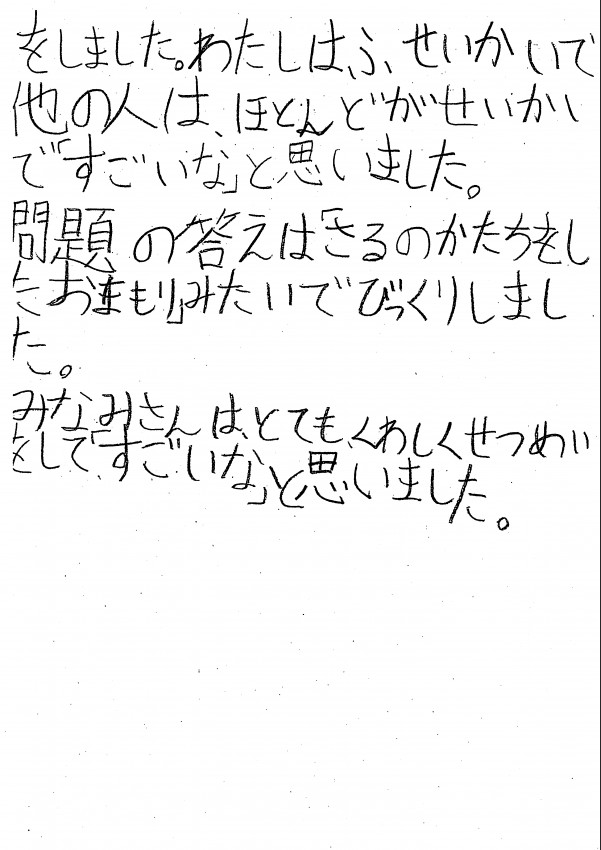 をしました。わたしは、ふ、せいかいで
他の人は、ほとんどがせいかい
で「すごいな」と思いました。
問題の答えは「さるのかたちをし
たおまもり」みたいでびっくりしまし
た。
みなみさんは、とても、くわしくせつめい
をして「すごいな」と思いました。